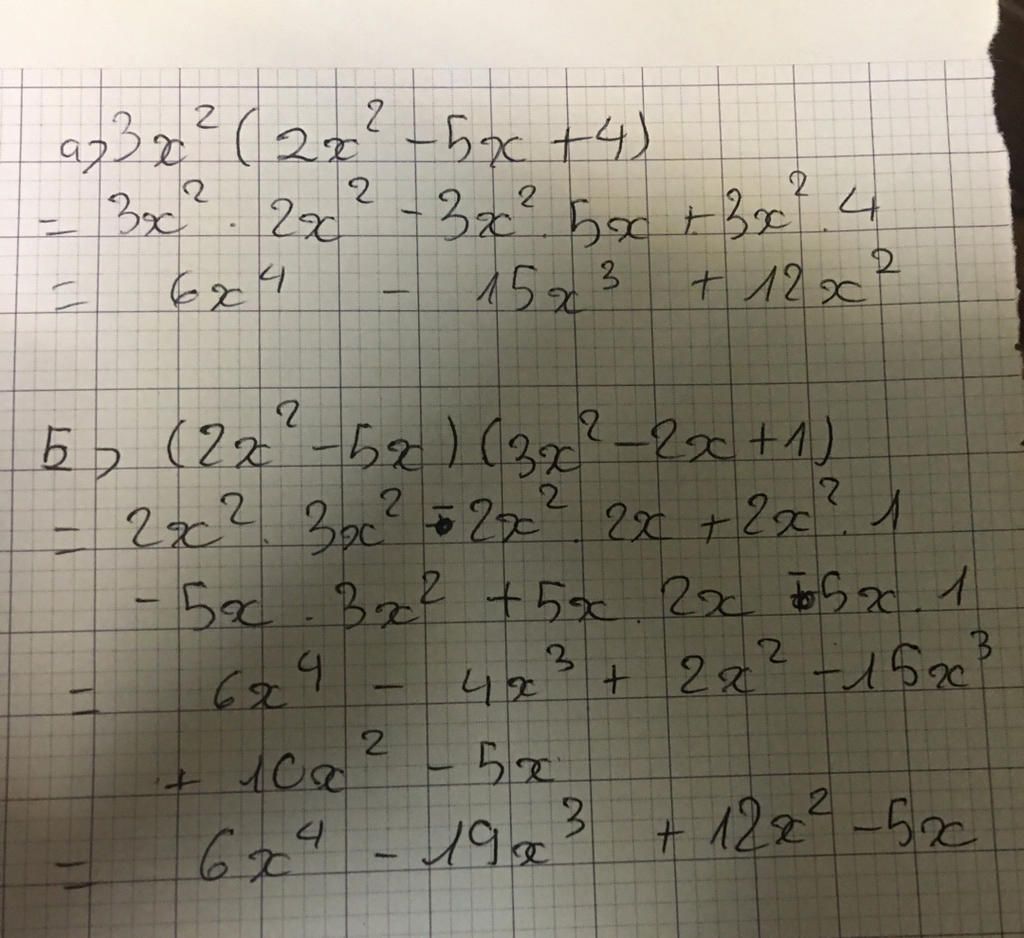 a, 3x² (2x² - 5x + 4)
= 3x² . 2x² - 3x² . 5x + 3x² . 4
= 6x⁴ - 15x³ + 12x²
b, (2x² - 5x) (3x² - 2x + 1)
= 2x² . 3x² - 2x² . 2x + 2x² . 1
- 5x . 3x² + 5x . 2x - 5x . 1
= 6x⁴ - 4x³ + 2x² - 15x³
+ 10x² - 5x
= 6x⁴ - 19x³ + 12x² - 5x